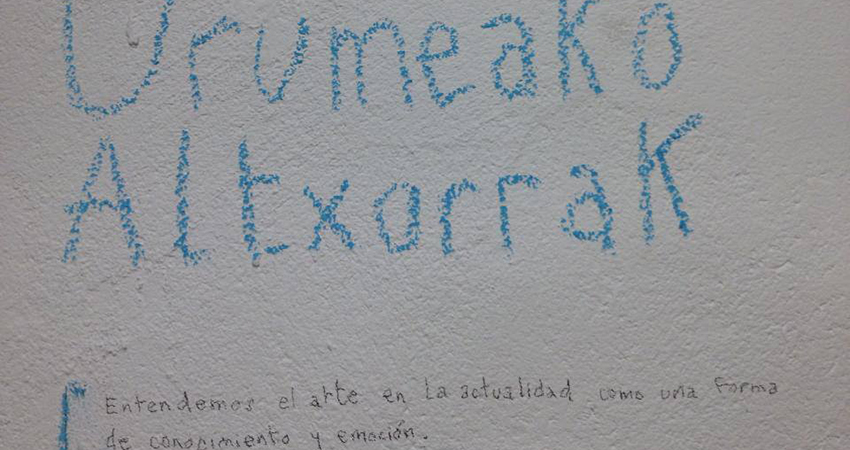 Urumeako
Altxorrak
Entendemos el arte en la actualidad como una forma
de conocimiento y emoción.